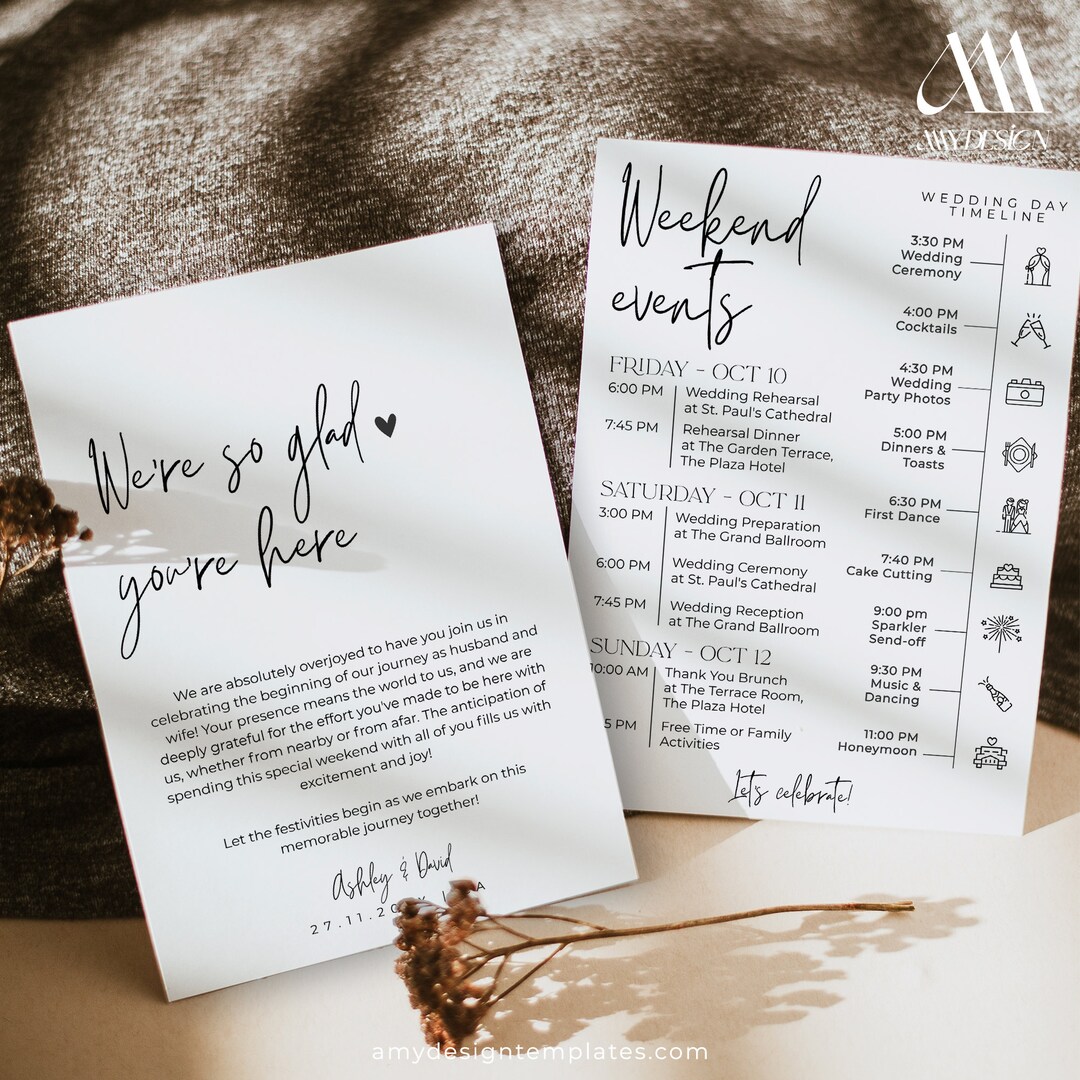 AMYDESIGN
We're so glad
you're here
We are absolutely overjoyed to have you join us in
celebrating the beginning of our journey as husband and
wife! Your presence means the world to us, and we are
deeply grateful for the effort you've made to be here with
us, whether from nearby or from afar. The anticipation of
spending this special weekend with all of you fills us with
excitement and joy!
Let the festivities begin as we embark on this
memorable journey together!
Ashley & David
27.11.20
Weekend
events
FRIDAY - OCT 10
6:00 PM
Wedding Rehearsal
at St. Paul's Cathedral
7:45 PM
Rehearsal Dinner
at The Garden Terrace,
The Plaza Hotel
SATURDAY - OCT 11
3:00 PM
Wedding Preparation
at The Grand Ballroom
6:00 PM
Wedding Ceremony
at St. Paul's Cathedral
7:45 PM
Wedding Reception
at The Grand Ballroom
SUNDAY - OCT 12
10:00 AM
Thank You Brunch
at The Terrace Room,
The Plaza Hotel
5 PM
Free Time or Family
Activities
WEDDING DAY
TIMELINE
3:30 PM
Wedding
Ceremony
4:00 PM
Cocktails
4:30 PM
Wedding
Party Photos
5:00 PM
Dinners &
Toasts
6:30 PM
First Dance
7:40 PM
Cake Cutting
9:00 pm
Sparkler
Send-off
9:30 PM
Music &
Dancing
11:00 PM
Honeymoon
Let's celebrate!
amydesigntemplates.com